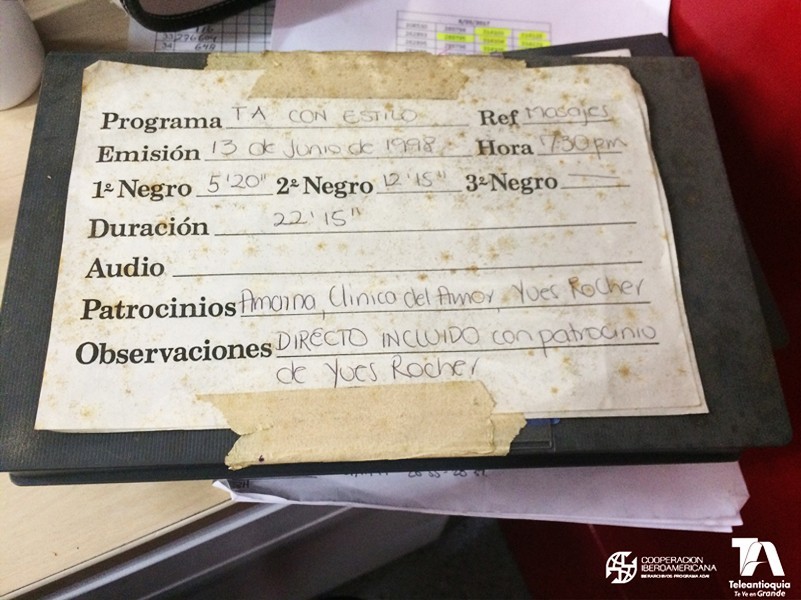 8/03/2017
116
33 276 604
34 648
Programa TA CON ESTILO Ref Masajes
Emisión 13 de Junio de 1998 Hora 7:30 pm
1º Negro 5'20" 2º Negro 12'15" 3º Negro
Duración 22'15"
Audio
Patrocinios Amaina, Clinica del Amor, Yves Rocher
Observaciones DIRECTO INCLUIDO con patrocinio
de Yves Rocher
COOPERACION
IBEROAMERICANA
IBERARCHIVOS-PROGRAMA ADAI
TA
Teleantioquia
Te Ve en Grande